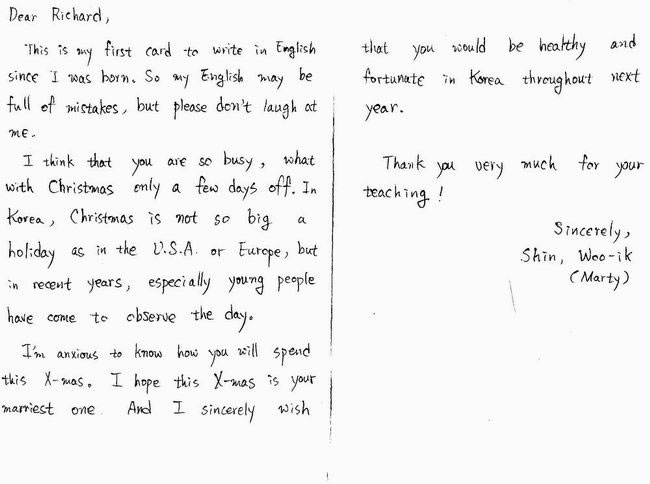 Dear Richard,
This is my first card to write in English
since I was born. So my English may be
full of mistakes, but please don't laugh at
me.
I think that you are so busy, what
with Christmas only a few days off. In
Korea, Christmas is not so big a
holiday as in the U.S.A. or Europe, but
in recent years, especially young people
have come to observe the day.
I'm anxious to know how you will spend
this X-mas. I hope this X-mas is your
marriest one. And I sincerely wish
that you would be healthy and
fortunate in Korea throughout next
year.
Thank you very much for your
teaching!
Sincerely,
Shin, Woo-ik
(Marty)